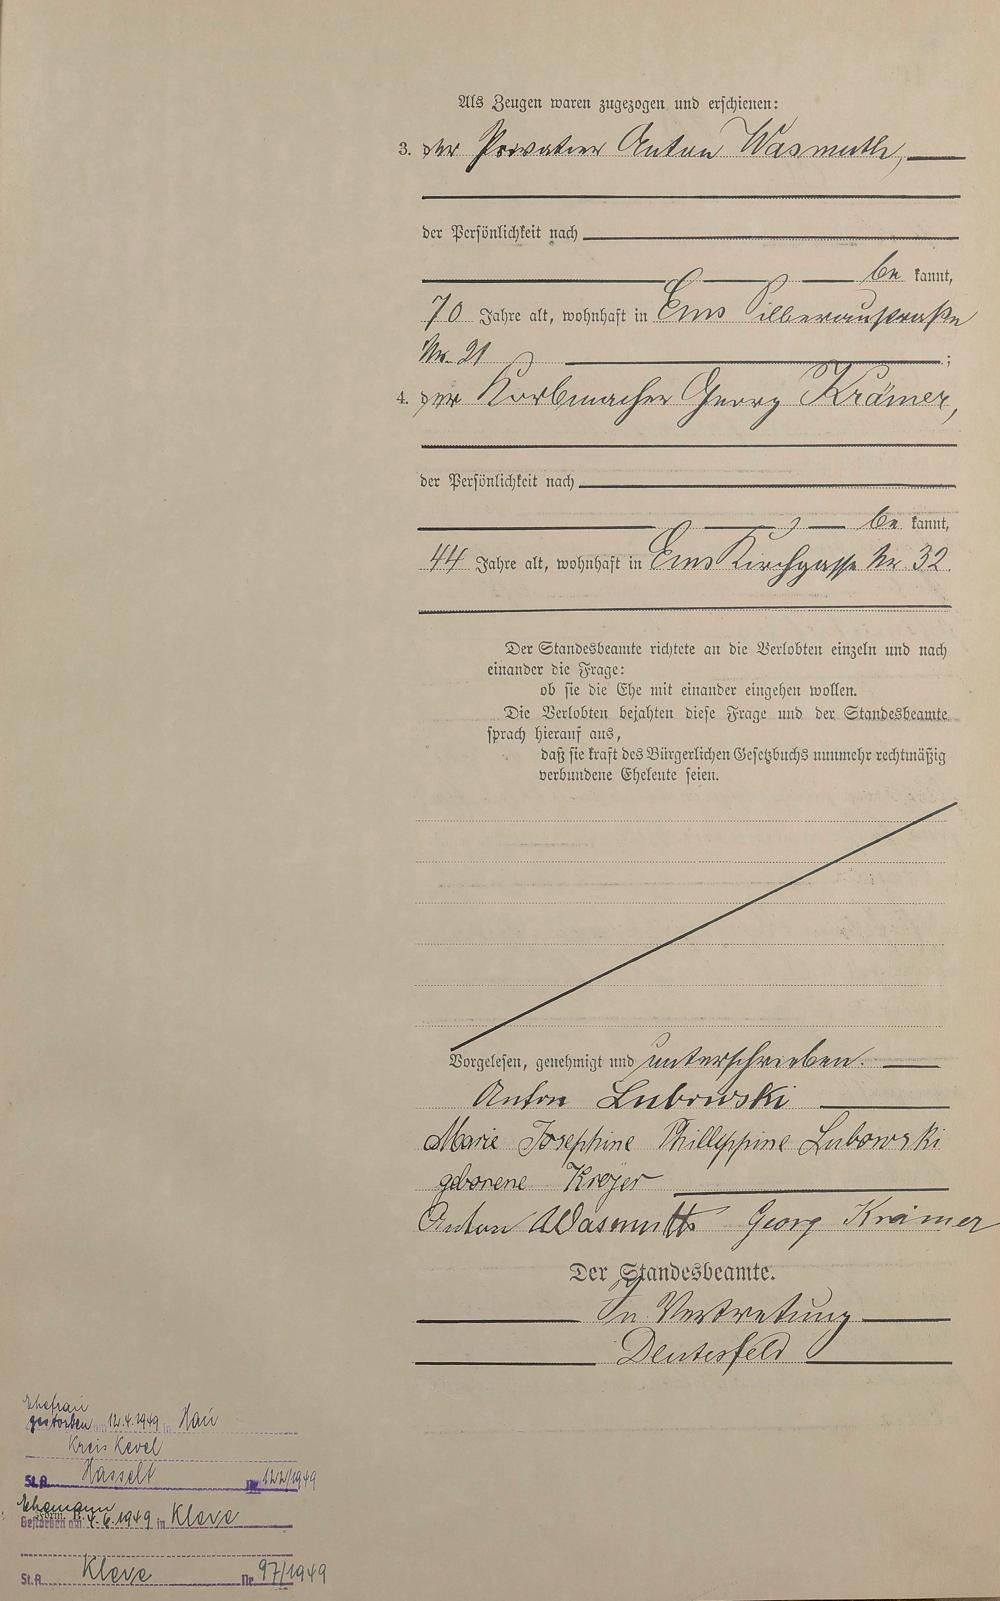 Als Zeugen waren zugezogen und erschienen:
3. der Privatier Anton Wasmuth,
der Persönlichkeit nach
be kannt,
70 Jahre alt, wohnhaft in Ems Silberaustraße
Nr. 21 ;
4. der Korbmacher Georg Krämer,
der Persönlichkeit nach
be kannt,
44 Jahre alt, wohnhaft in Ems Kirchgasse Nr. 32.
Der Standesbeamte richtete an die Verlobten einzeln und nach
einander die Frage:
ob sie die Ehe mit einander eingehen wollen.
Die Verlobten bejahten diese Frage und der Standesbeamte
sprach hierauf aus,
daß sie kraft des Bürgerlichen Gesetzbuchs nunmehr rechtmäßig
verbundene Eheleute seien.
Vorgelesen, genehmigt und unterschrieben.
Anton Lubowski
Marie Josephine Phillippine Lubowski
geborene Kreyer
Anton Wasmuth Georg Krämer
Der Standesbeamte.
In Vertretung
Deutesfeld
Ehefrau
gestorben am 12.4.1949 in Hau
Kreis
St.A. Hasselt Nr. 122/1949
Ehemann
Gestorben am 4.6.1949 in Kleve
St.A. Kleve Nr. 97/1949